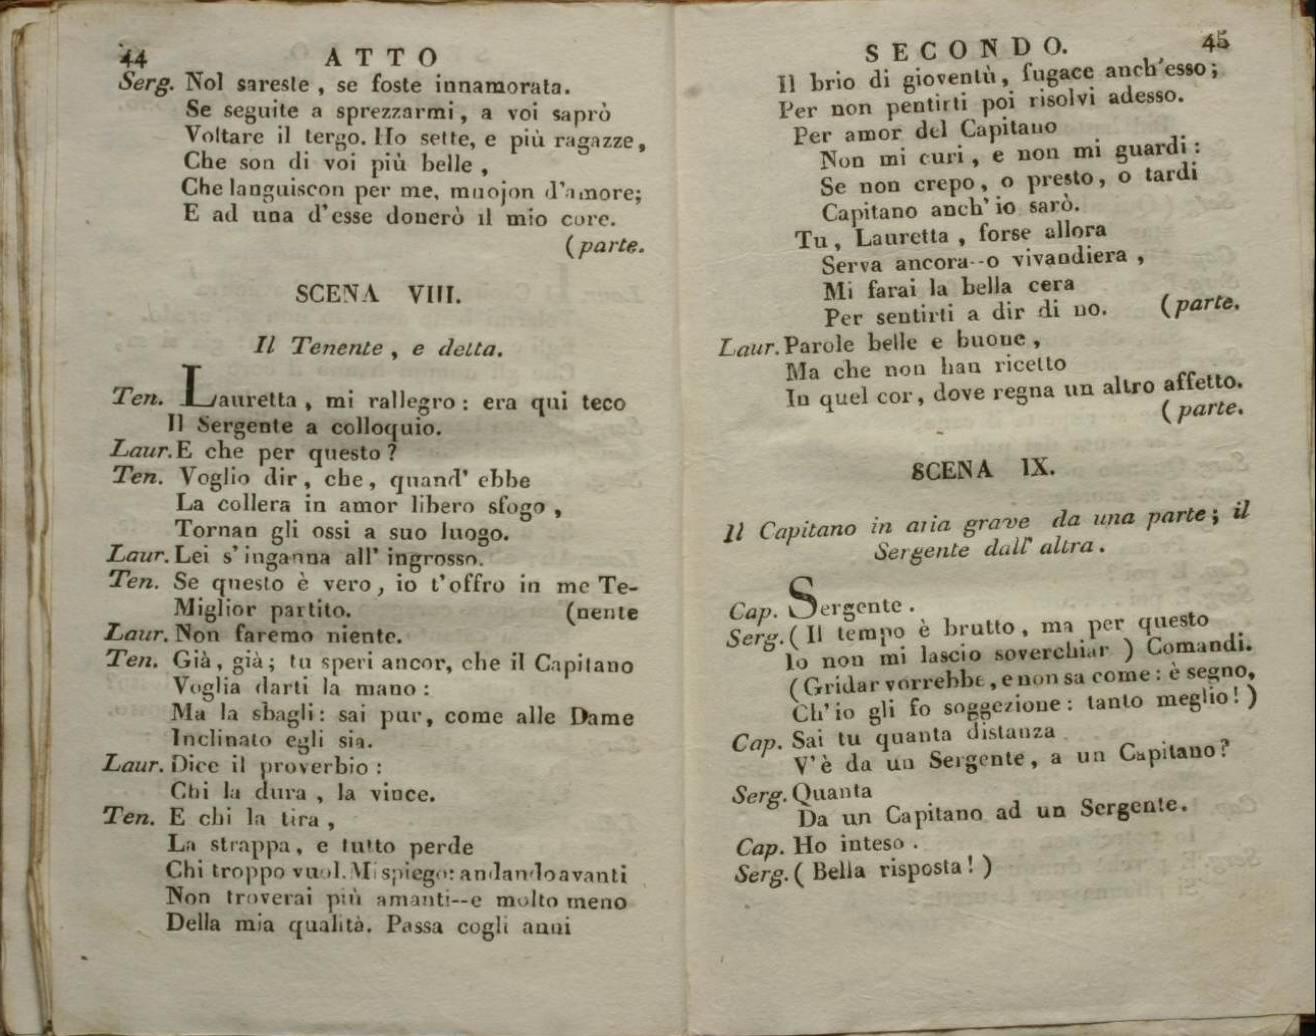 44 ATTO
Serg. Nol sareste, se foste innamorata.
Se seguite a sprezzarmi, a voi saprò
Voltare il tergo. Ho sette, e più ragazze,
Che son di voi più belle,
Che languiscon per me, muojon d'amore;
E ad una d'esse donerò il mio core.
(parte.
SCENA VIII.
Il Tenente, e detta.
Ten. Lauretta, mi rallegro: era qui teco
Il Sergente a colloquio.
Laur. E che per questo?
Ten. Voglio dir, che, quand' ebbe
La collera in amor libero sfogo,
Tornan gli ossi a suo luogo.
Laur. Lei s'inganna all' ingrosso.
Ten. Se questo è vero, io t'offro in me Te-
Miglior partito. (nente
Laur. Non faremo niente.
Ten. Già, già; tu speri ancor, che il Capitano
Voglia darti la mano:
Ma la sbagli: sai pur, come alle Dame
Inclinato egli sia.
Laur. Dice il proverbio:
Chi la dura, la vince.
Ten. E chi la tira,
La strappa, e tutto perde
Chi troppo vuol. Mi spiego: andando avanti
Non troverai più amanti--e molto meno
Della mia qualità. Passa cogli anni
SECONDO. 45
Il brio di gioventù, fugace anch'esso;
Per non pentirti poi risolvi adesso.
Per amor del Capitano
Non mi curi, e non mi guardi:
Se non crepo, o presto, o tardi
Capitano anch' io sarò.
Tu, Lauretta, forse allora
Serva ancora--o vivandiera,
Mi farai la bella cera
Per sentirti a dir di no. (parte.
Laur. Parole belle e buone,
Ma che non han ricetto
In quel cor, dove regna un altro affetto.
(parte.
SCENA IX.
Il Capitano in aria grave da una parte; il
Sergente dall' altra.
Cap. Sergente.
Serg. (Il tempo è brutto, ma per questo
Io non mi lascio soverchiar) Comandi.
(Gridar vorrebbe, e non sa come: è segno,
Ch'io gli fo soggezione: tanto meglio!)
Cap. Sai tu quanta distanza
V'è da un Sergente, a un Capitano?
Serg. Quanta
Da un Capitano ad un Sergente.
Cap. Ho inteso.
Serg. (Bella risposta!)